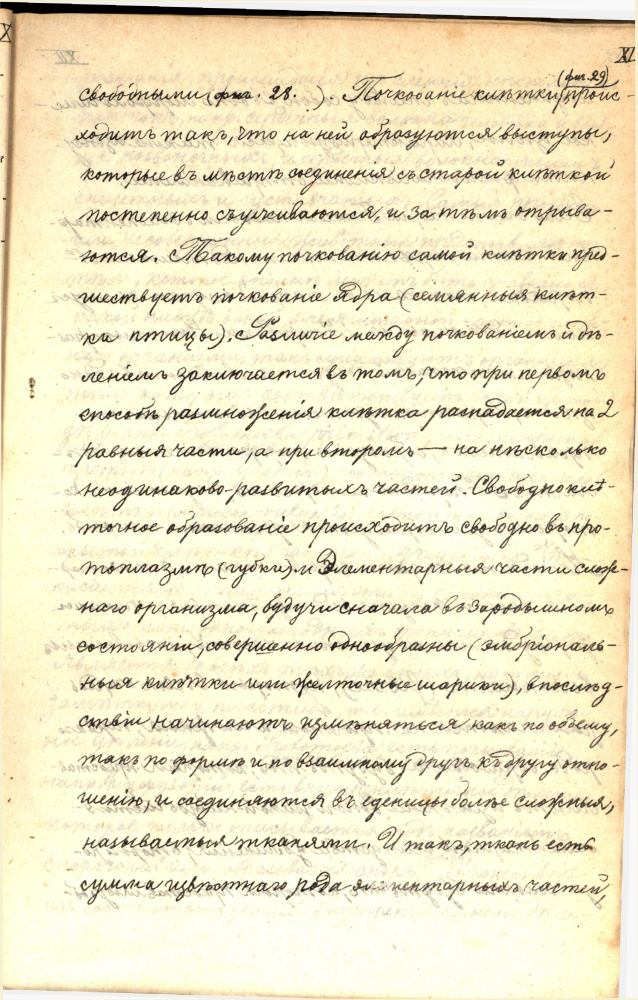 XI
(фиг. 29)
свободными (фиг. 28. ). Почкованіе клѣтки проис-
ходитъ такъ, что на ней образуются выступы,
которые въ мѣстѣ соединенія съ старой клѣткой
постепенно съуживаются, и затѣмъ отрыва-
ются. Такому почкованію самой клѣтки пред-
шествуетъ почкованіе ядра (семянныя клѣт-
ки птицы). Различіе между почкованіемъ и дѣ-
леніемъ заключается въ томъ, что при первомъ
способѣ размноженія клѣтка распадается на 2
равныя части, а при второмъ — на нѣсколько
неодинаково-развитыхъ частей. Свободноклѣ-
точное образованіе происходитъ свободно въ про-
топлазмѣ (губки) Элементарныя части слож-
наго организма, будучи сначала въ зародышномъ
состояніи, совершенно однообразны (эмбріональ-
ныя клѣтки или желточные шарики), впослѣд-
ствіи начинаютъ измѣняться какъ по объему,
такъ по формѣ и по взаимному другъ къ другу отно-
шенію, и соединяются въ еденицы болѣе сложныя,
называемыя тканями. И такъ, ткань есть
сумма извѣстнаго рода элементарныхъ частей,